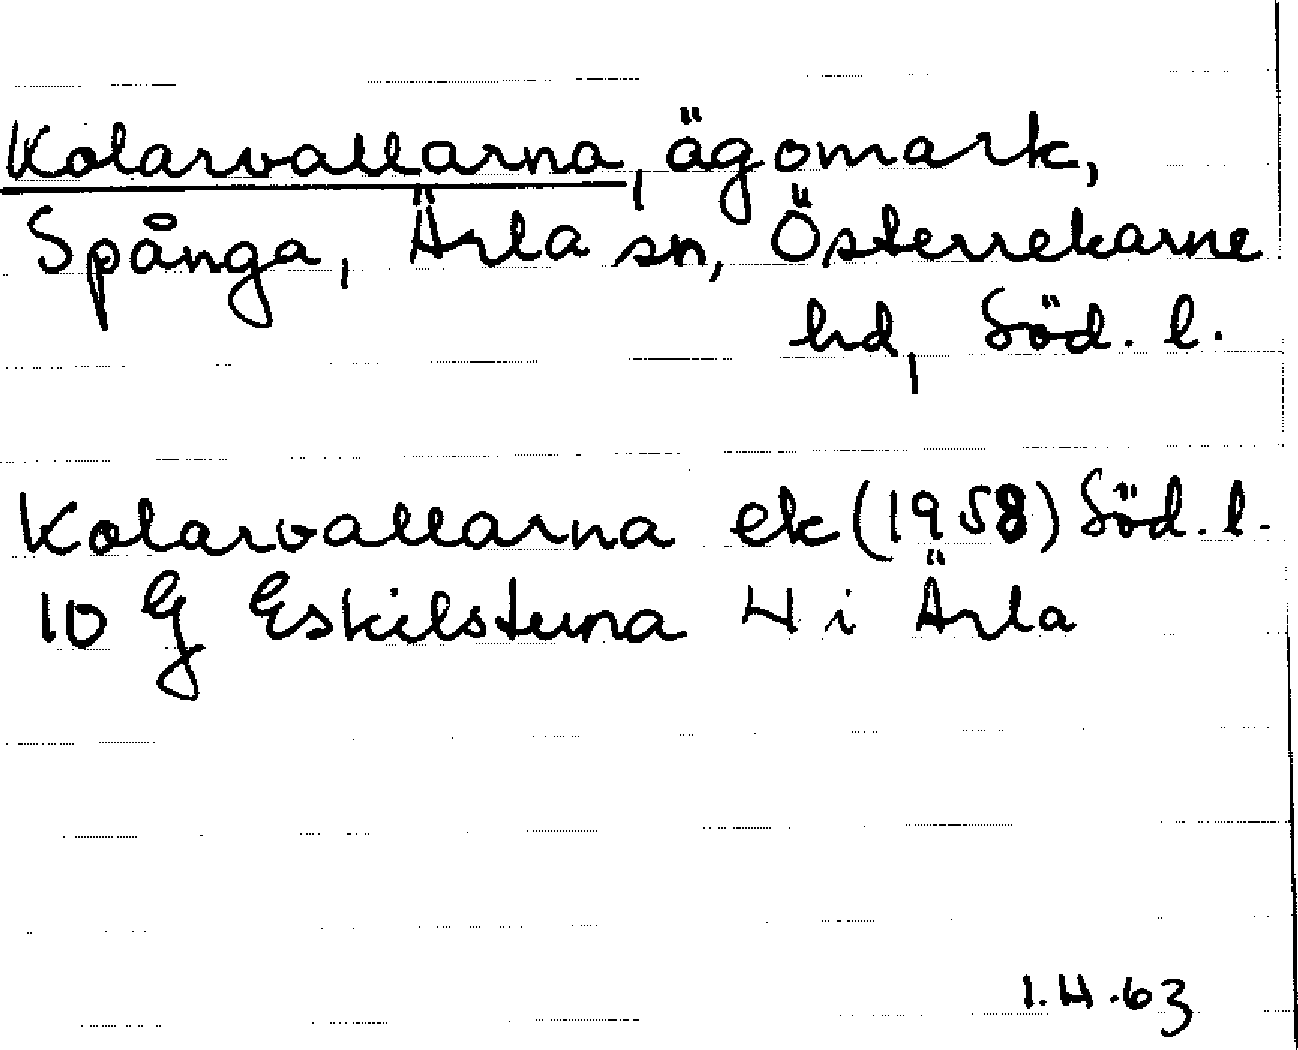 Kolarvallarna, ägomark,
Spånga, Ärla sn, Österrekarne
hd, Söd. l.
Kolarvallarna ek (1958) Söd. l.
10 G Eskilstuna 4 i Ärla
1.4.63